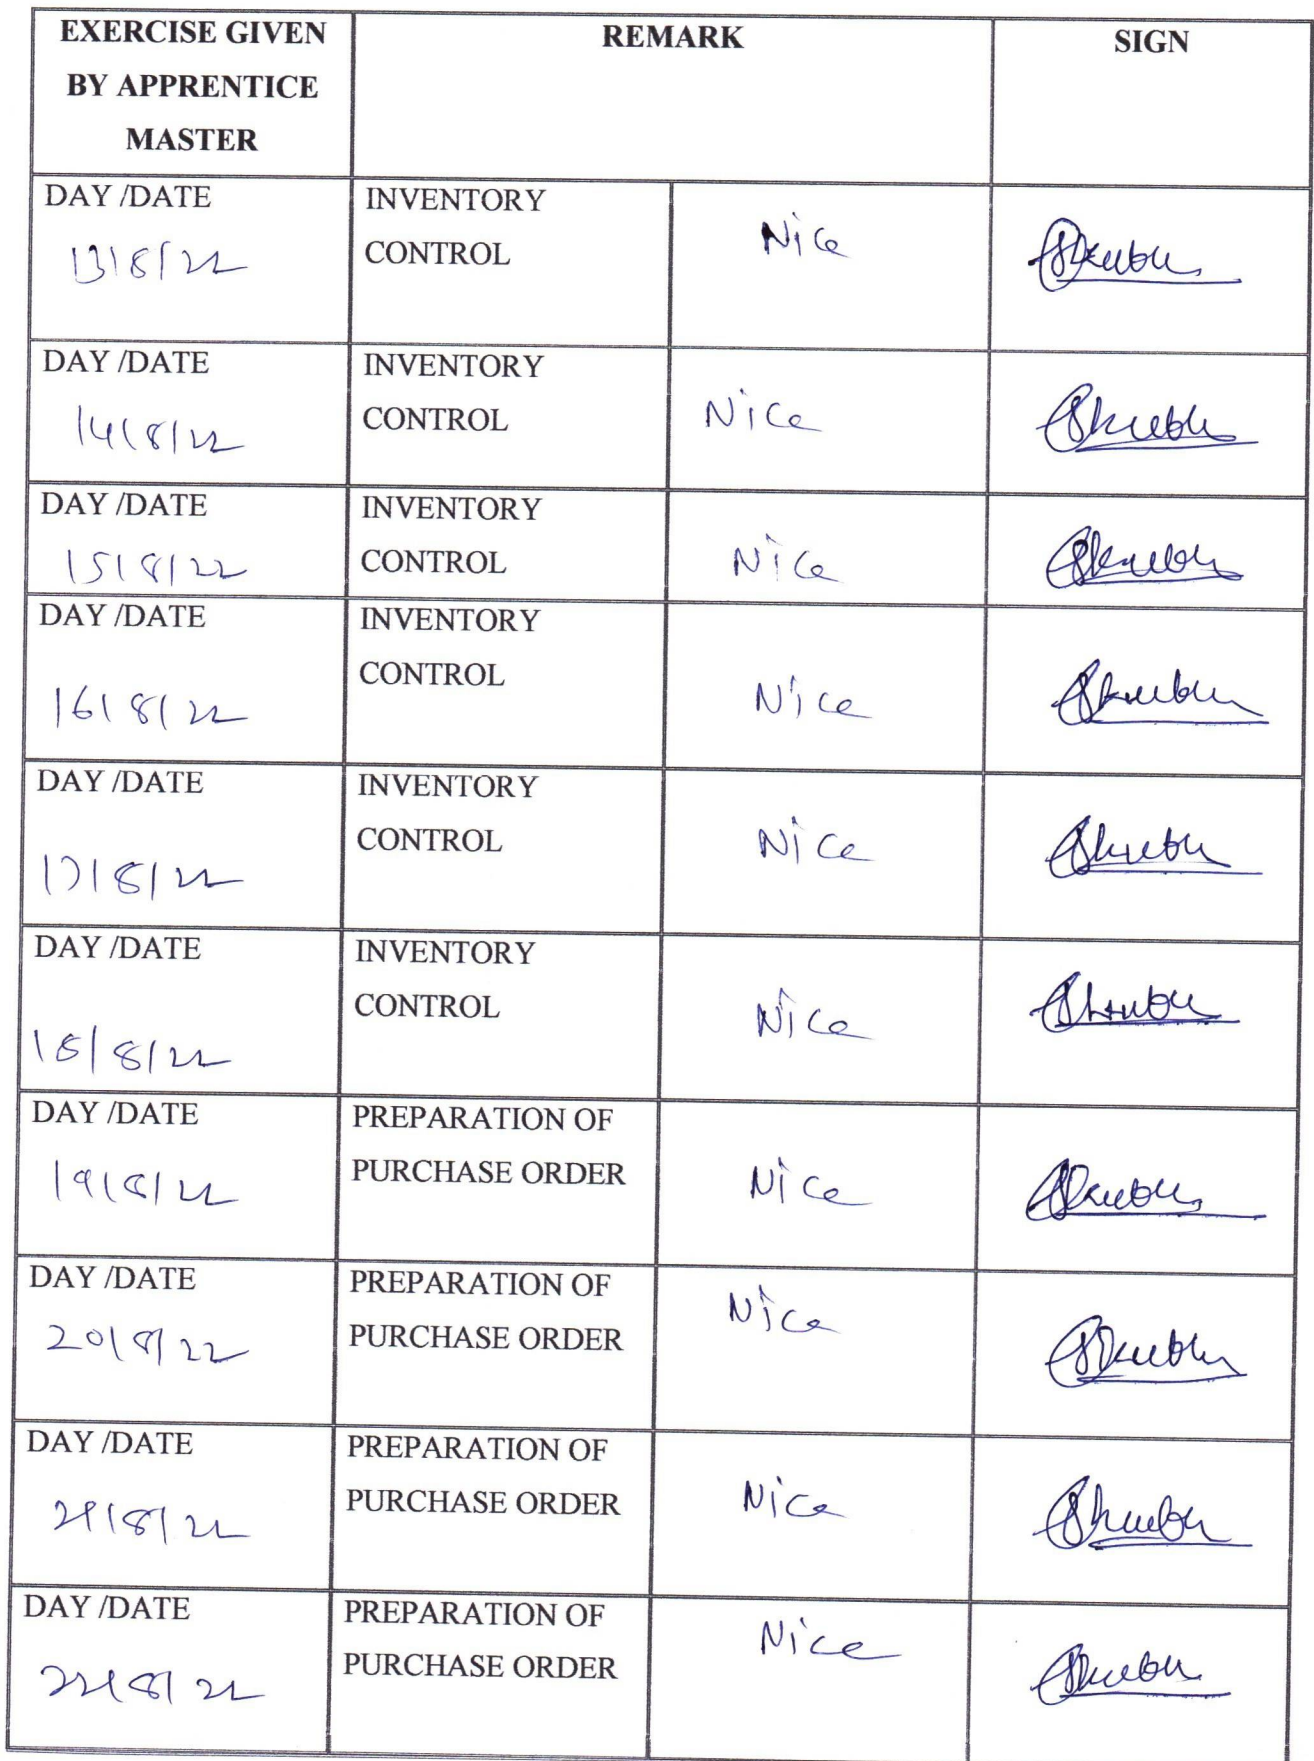 EXERCISE GIVEN
BY APPRENTICE
MASTER
REMARK
SIGN
DAY /DATE
13/8/22
INVENTORY
CONTROL
Nice
DAY /DATE
14/8/22
INVENTORY
CONTROL
Nice
DAY /DATE
15/8/22
INVENTORY
CONTROL
Nice
DAY /DATE
16/8/22
INVENTORY
CONTROL
Nice
DAY /DATE
17/8/22
INVENTORY
CONTROL
Nice
DAY /DATE
18/8/22
INVENTORY
CONTROL
Nice
DAY /DATE
19/8/22
PREPARATION OF
PURCHASE ORDER
Nice
DAY /DATE
20/8/22
PREPARATION OF
PURCHASE ORDER
Nice
DAY /DATE
21/8/22
PREPARATION OF
PURCHASE ORDER
Nice
DAY /DATE
22/8/22
PREPARATION OF
PURCHASE ORDER
Nice